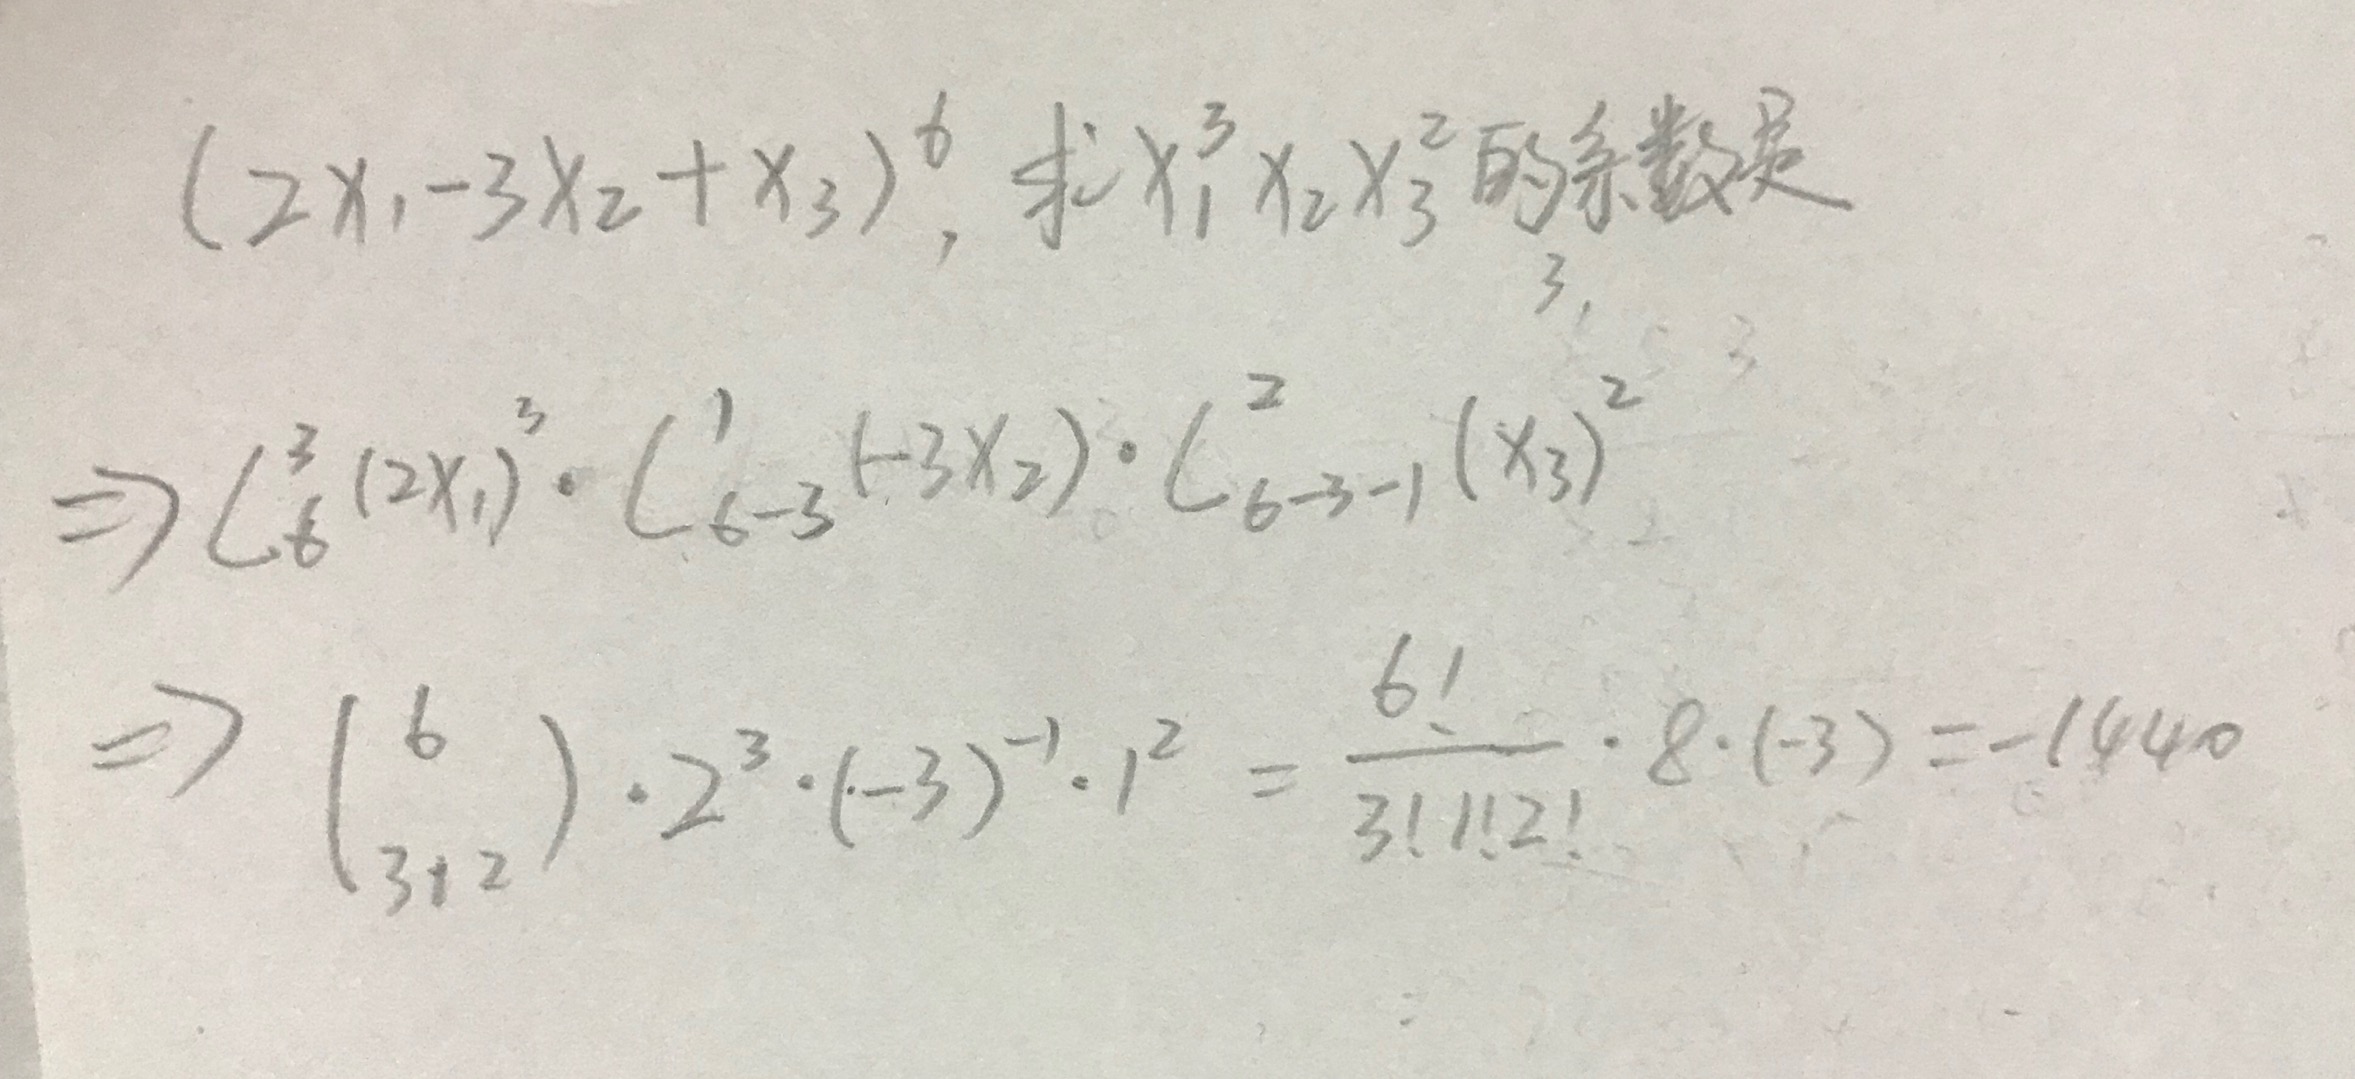 (2x₁-3x₂+x₃)⁶, 求x₁³x₂x₃²的系数是
3,
⇒ C₆³(2x₁)³·C₆₋₃¹(-3x₂)·C₆₋₃₋₁²(x₃)²
⇒ (6 3 1 2)·2³·(-3)⁻¹·1² = 6!/3!1!2!·8·(-3)=-1440